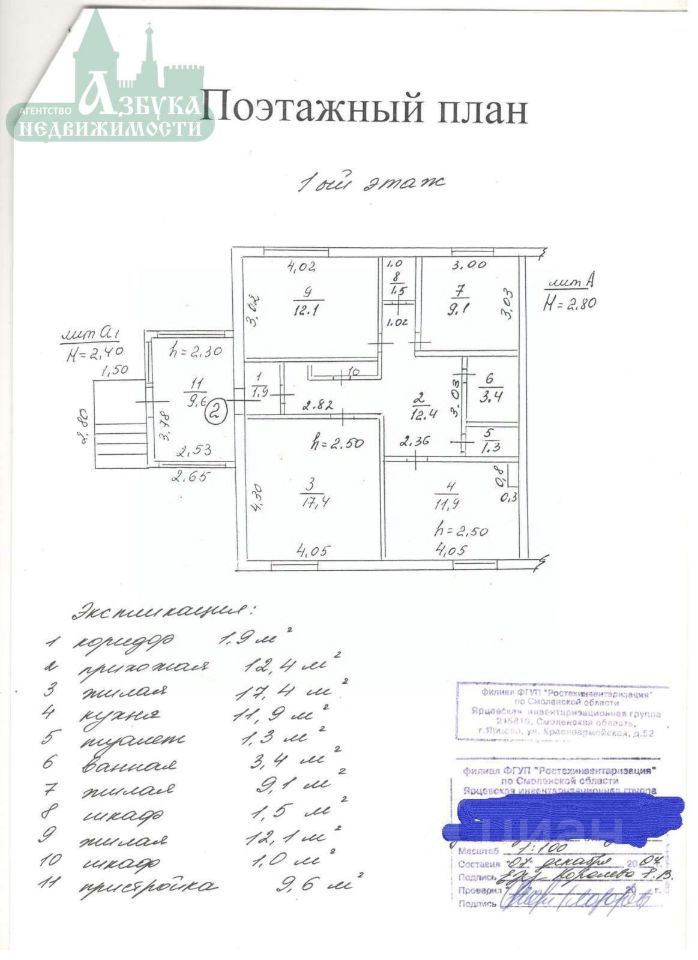 АГЕНТСТВО
АЗБУКА
НЕДВИЖИМОСТИ
Поэтажный план
1ый этаж
4,02
1.0
3.00
8
1.5
9
12.1
7
9.1
3,02
3,03
1.02
лит А
H=2.80
лит А1
H=2,40
1,50
h=2.30
11
9.6
2
3,78
2.80
2.53
2.65
1
1.9
10
2.82
2
12.4
3.03
6
3.4
5
1.3
2.36
h=2.50
3
17,4
4,30
4.05
4
11,9
0,8
0,3
h=2,50
4.05
Экспликация:
1 коридор 1,9 м²
2 прихожая 12,4 м²
3 жилая 17,4 м²
4 кухня 11,9 м²
5 туалет 1,3 м²
6 ванная 3,4 м²
7 жилая 9,1 м²
8 шкаф 1,5 м²
9 жилая 12,1 м²
10 шкаф 1,0 м²
11 пристройка 9,6 м²
филиал ФГУП "Ростехинвентаризация"
по Смоленской области
Ярцевская инвентаризационная группа
215810, Смоленская область,
г.Ярцево, ул. Красноармейская, д.52
филиал ФГУП "Ростехинвентаризация"
по Смоленской области
Ярцевская инвентаризационная группа
циан
Масштаб 1:100
Составил 07 декабря 2007
Подпись Королева Г.В.
Проверил 20 г.
Подпись